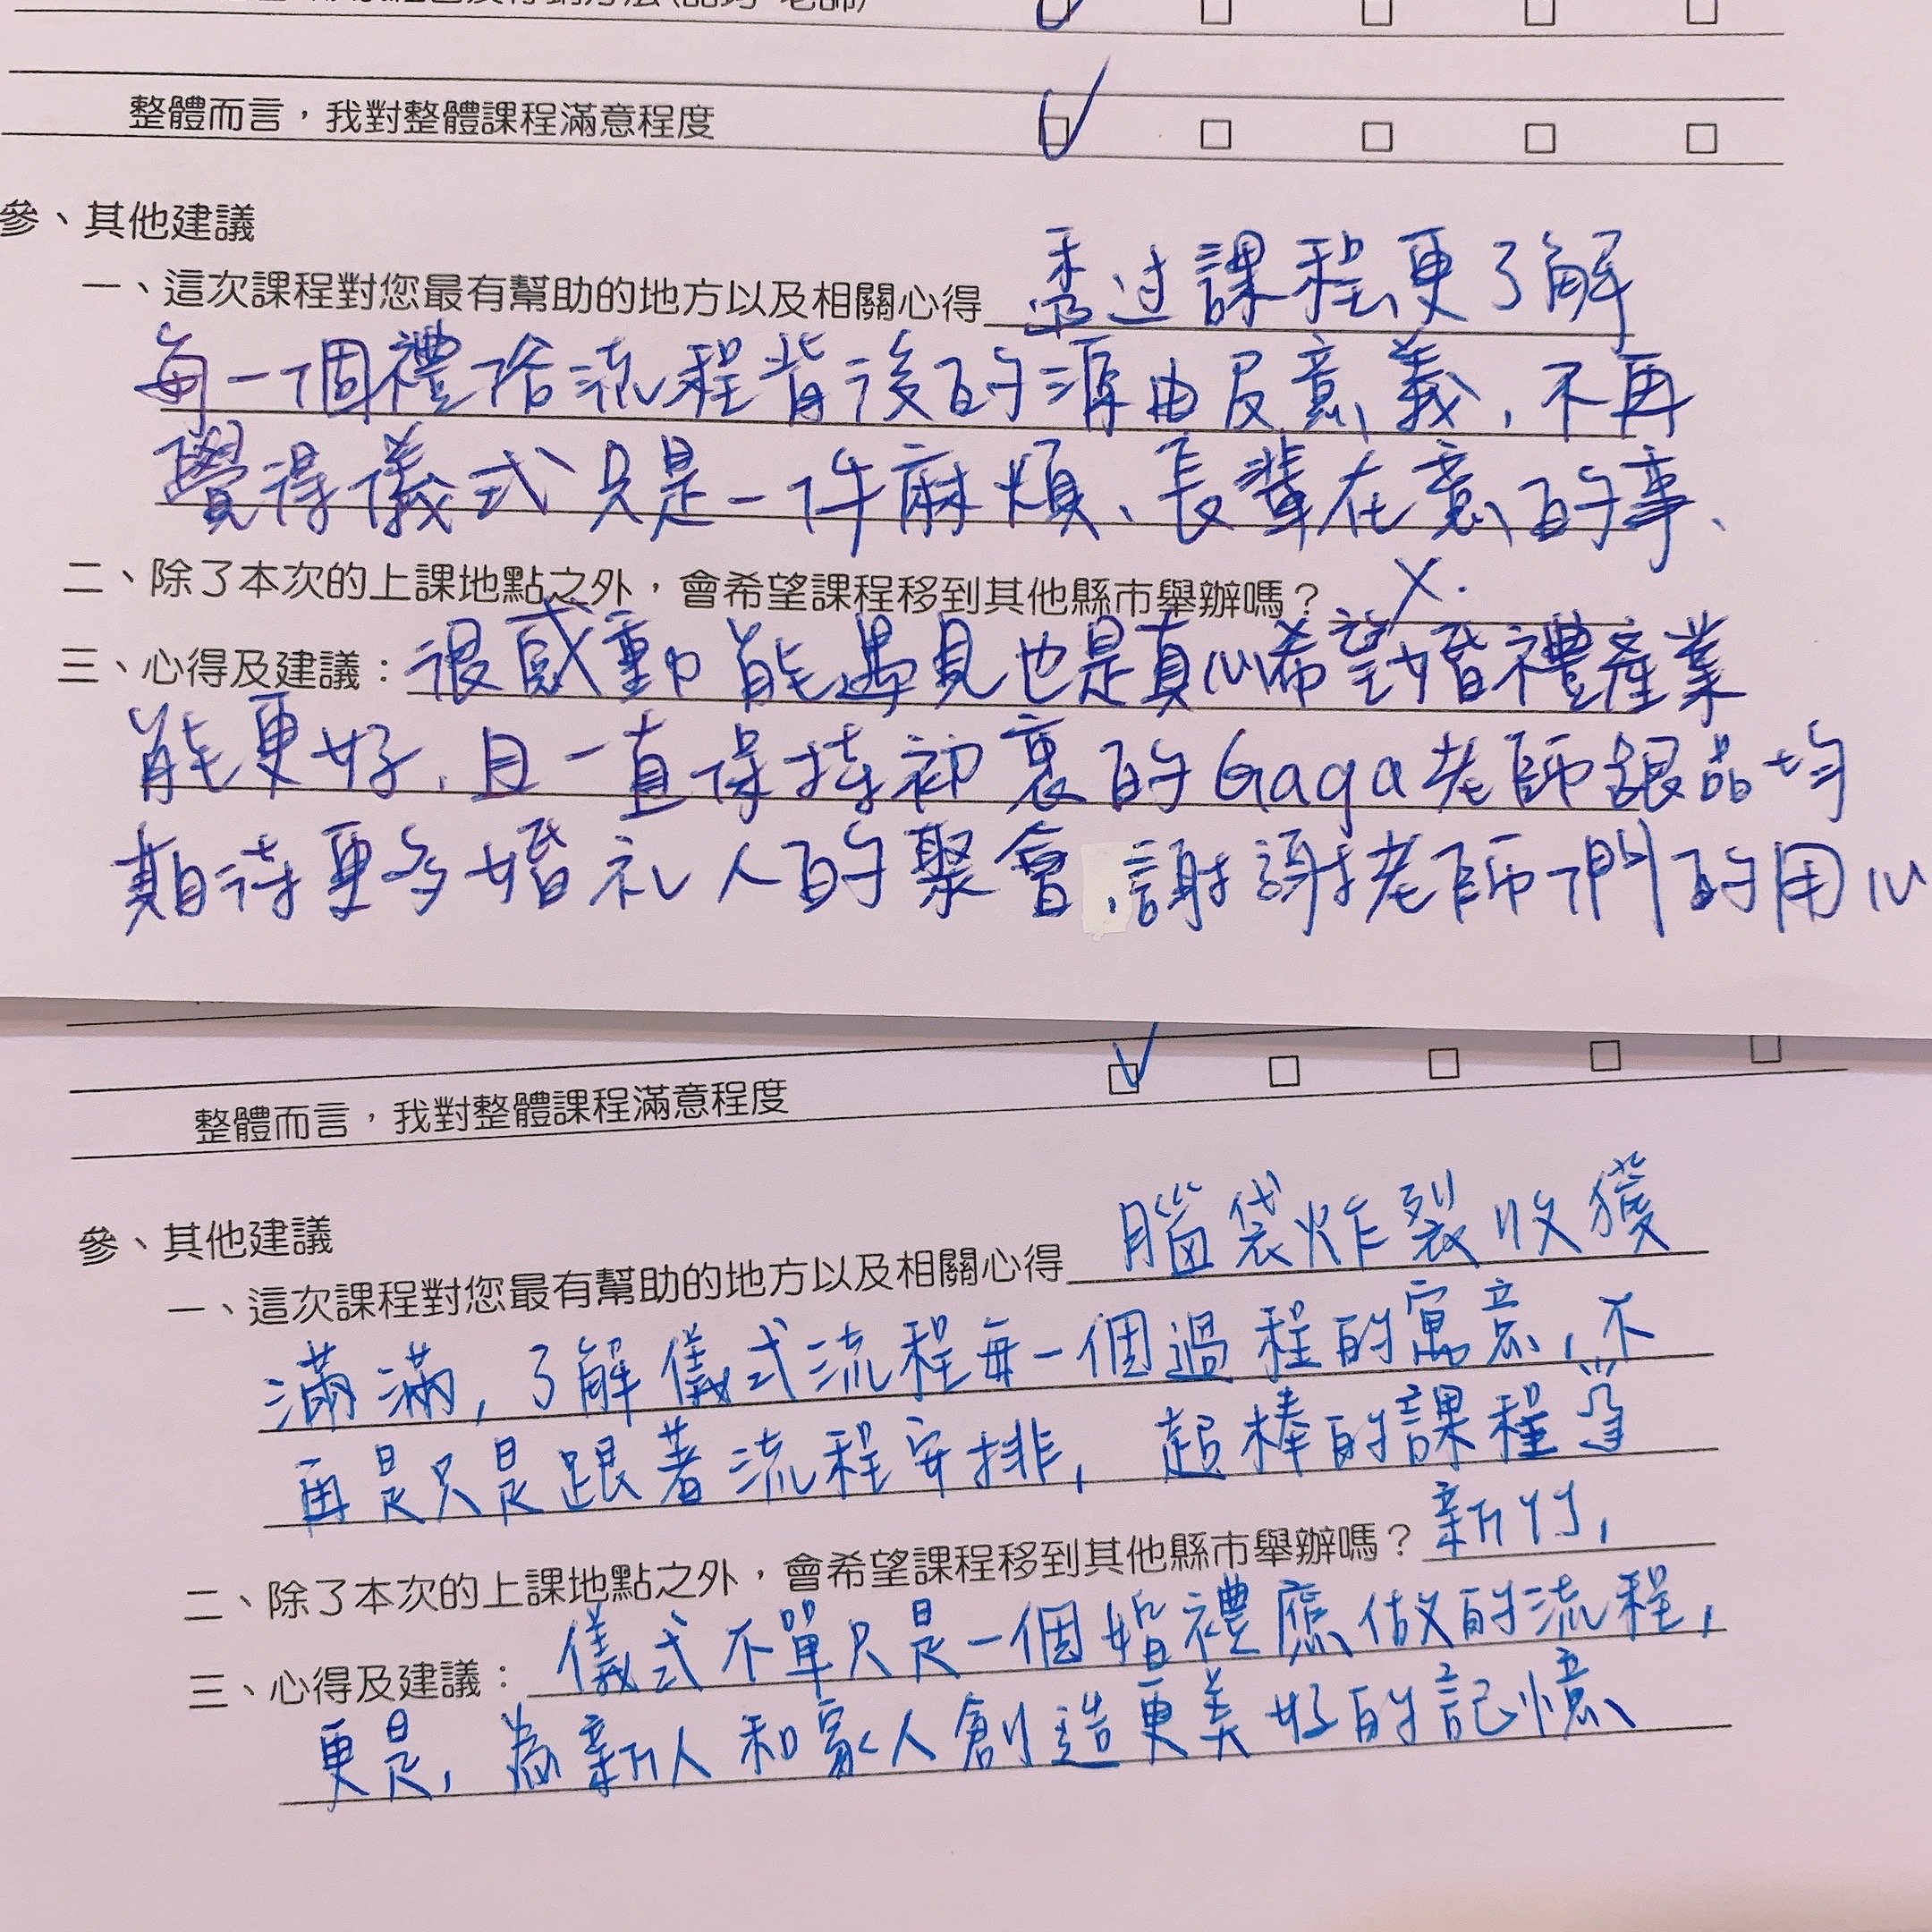 整體而言，我對整體課程滿意程度
參、其他建議
一、這次課程對您最有幫助的地方以及相關心得 透过課程更了解
每一個禮俗流程背後的源由及意義，不再
覺得儀式只是一件麻煩、長輩在意的事、
二、除了本次的上課地點之外，會希望課程移到其他縣市舉辦嗎？ X.
三、心得及建議： 很感動能遇見也是真心希望婚禮產業
能更好，且一直保持初衷的Gaga老師跟品均
期待更多婚礼人的聚會，謝謝老師們的用心
整體而言，我對整體課程滿意程度
參、其他建議
一、這次課程對您最有幫助的地方以及相關心得 腦袋炸裂收獲
滿滿，了解儀式流程每一個過程的寓意，不
再是只是跟著流程安排，超棒的課程
二、除了本次的上課地點之外，會希望課程移到其他縣市舉辦嗎？ 新竹，
三、心得及建議： 儀式不單只是一個婚禮應做的流程，
更是，為新人和家人創造更美好的記憶